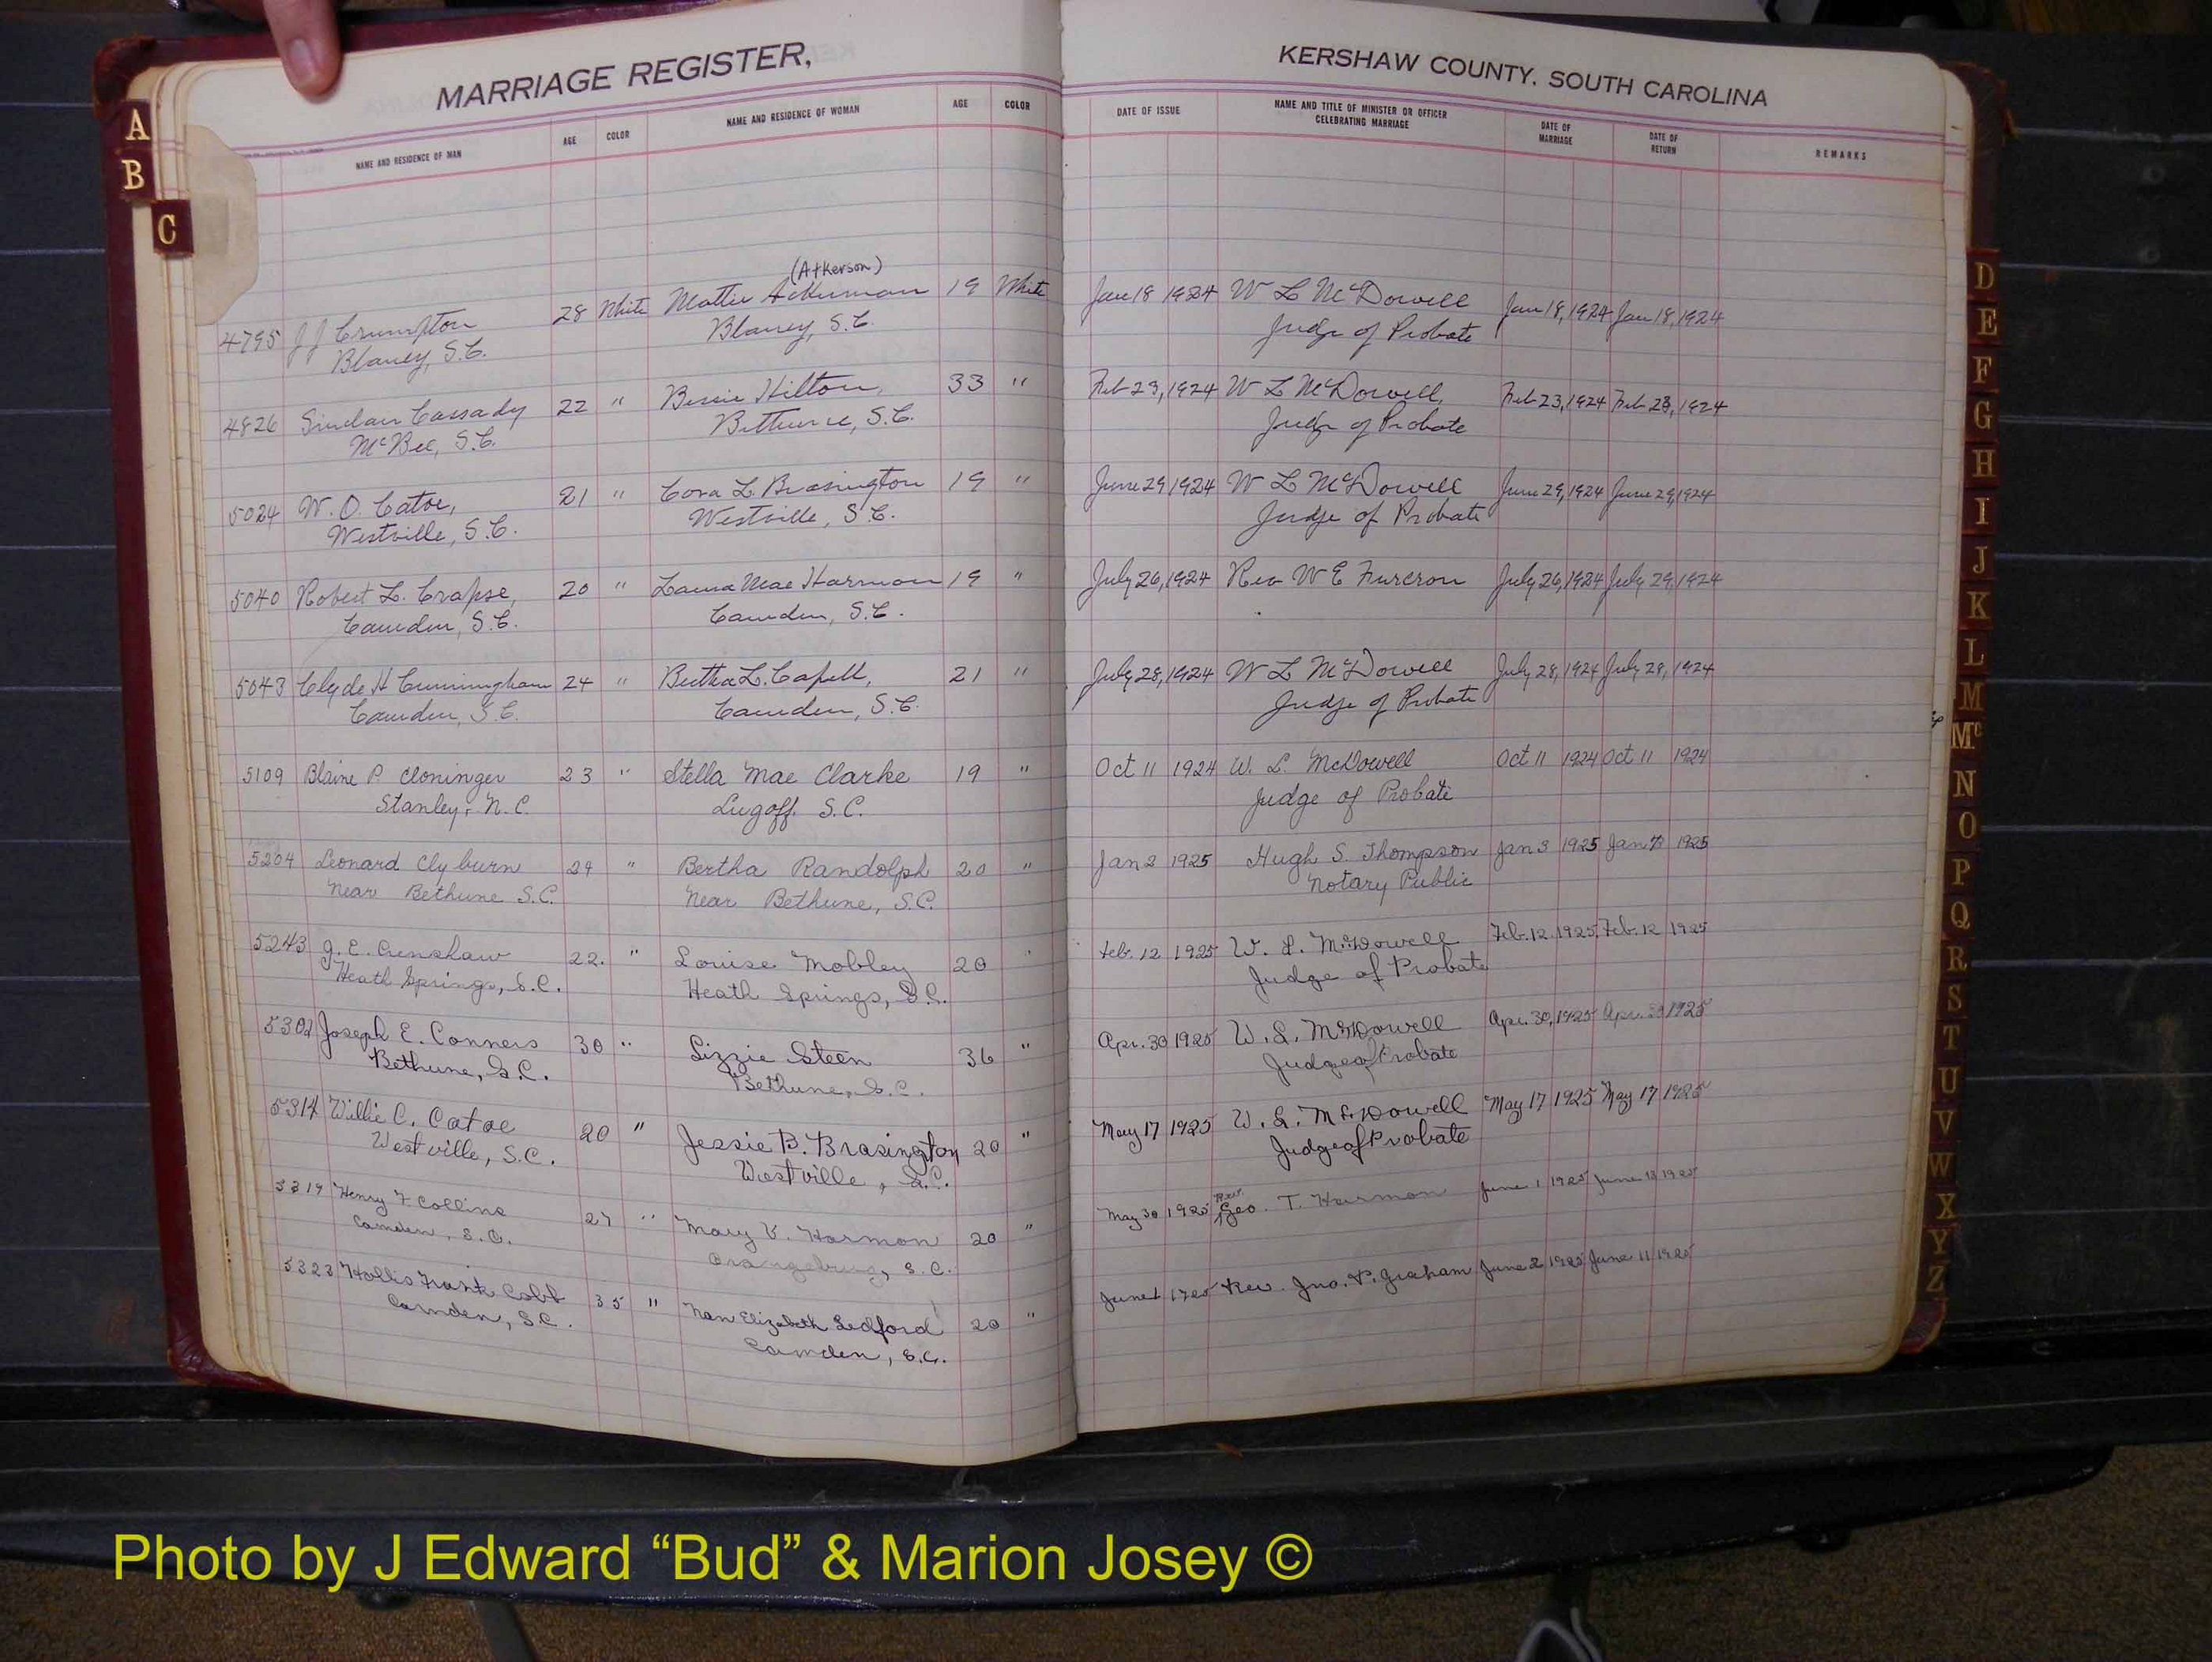 MARRIAGE REGISTER,
KERSHAW COUNTY. SOUTH CAROLINA
NAME AND RESIDENCE OF MAN AGE COLOR NAME AND RESIDENCE OF WOMAN AGE COLOR DATE OF ISSUE NAME AND TITLE OF MINISTER OR OFFICER CELEBRATING MARRIAGE DATE OF MARRIAGE DATE OF RETURN REMARKS
(Atkerson)
4795 J J Crumpton 28 White Mattie Ackerman 19 White Jan 18 1924 W L McDowell Jan 18, 1924 Jan 18, 1924
Blaney, S.C. Blaney, S.C. Judge of Probate
4826 Sinclair Cassady 22 " Bessie Hilton, 33 " Feb 23, 1924 W L McDowell, Feb 23, 1924 Feb 23, 1924
McBee, S.C. Bethune, S.C. Judge of Probate
5024 W. O. Catoe, 21 " Cora L. Brasington 19 " June 29 1924 W L McDowell June 29, 1924 June 29, 1924
Westville, S.C. Westville, S.C. Judge of Probate
5040 Robert L. Crapse, 20 " Laura Mae Harmon 19 " July 26, 1924 Rev W E Furcron July 26, 1924 July 29, 1924
Camden, S.C. Camden, S.C.
5043 Clyde H Cunningham 24 " Bertha L. Capell, 21 " July 28, 1924 W L McDowell July 28, 1924 July 28, 1924
Camden, S.C. Camden, S.C. Judge of Probate
5109 Blaine P. Cloninger 23 " Stella Mae Clarke 19 " Oct 11 1924 W. L. McDowell Oct 11 1924 Oct 11 1924
Stanley, N.C. Lugoff, S.C. Judge of Probate
5204 Leonard Clyburn 24 " Bertha Randolph 20 " Jan 2 1925 Hugh S. Thompson Jan 3 1925 Jan 1925
Near Bethune S.C. Near Bethune, S.C. Notary Public
5243 J. E. Crenshaw 22. " Louise Mobley 20 Feb. 12 1925 W. L. McDowell Feb. 12 1925 Feb. 12 1925
Heath Springs, S.C. Heath Springs, S.C. Judge of Probate
5302 Joseph E. Conners 30 " Lizzie Steen 36 " Apr. 30 1925 W. L. McDowell Apr. 30, 1925 Apr. 30 1925
Bethune, S.C. Bethune, S.C. Judge of Probate
5314 Willie C. Catoe 20 " Jessie B. Brasington 20 " May 17 1925 W. L. McDowell May 17 1925 May 17 1925
Westville, S.C. Westville, S.C. Judge of Probate
5319 Henry F. Collins 27 " Mary V. Harmon 20 " May 30 1925 Rev. Geo. T. Harmon June 1 1925 June 13 1925
Camden, S.C. Orangeburg, S.C.
5323 Hollis Frank Cobb 35 " Nan Elizabeth Ledford 20 " June 1 1925 Rev. Jno. P. Graham June 2 1925 June 11 1925
Camden, S.C. Camden, S.C.
A
B
C
D
E
F
G
H
I
J
K
L
M
Mc
N
O
P
Q
R
S
T
U
V
W
X
Y
Z
Photo by J Edward “Bud” & Marion Josey ©